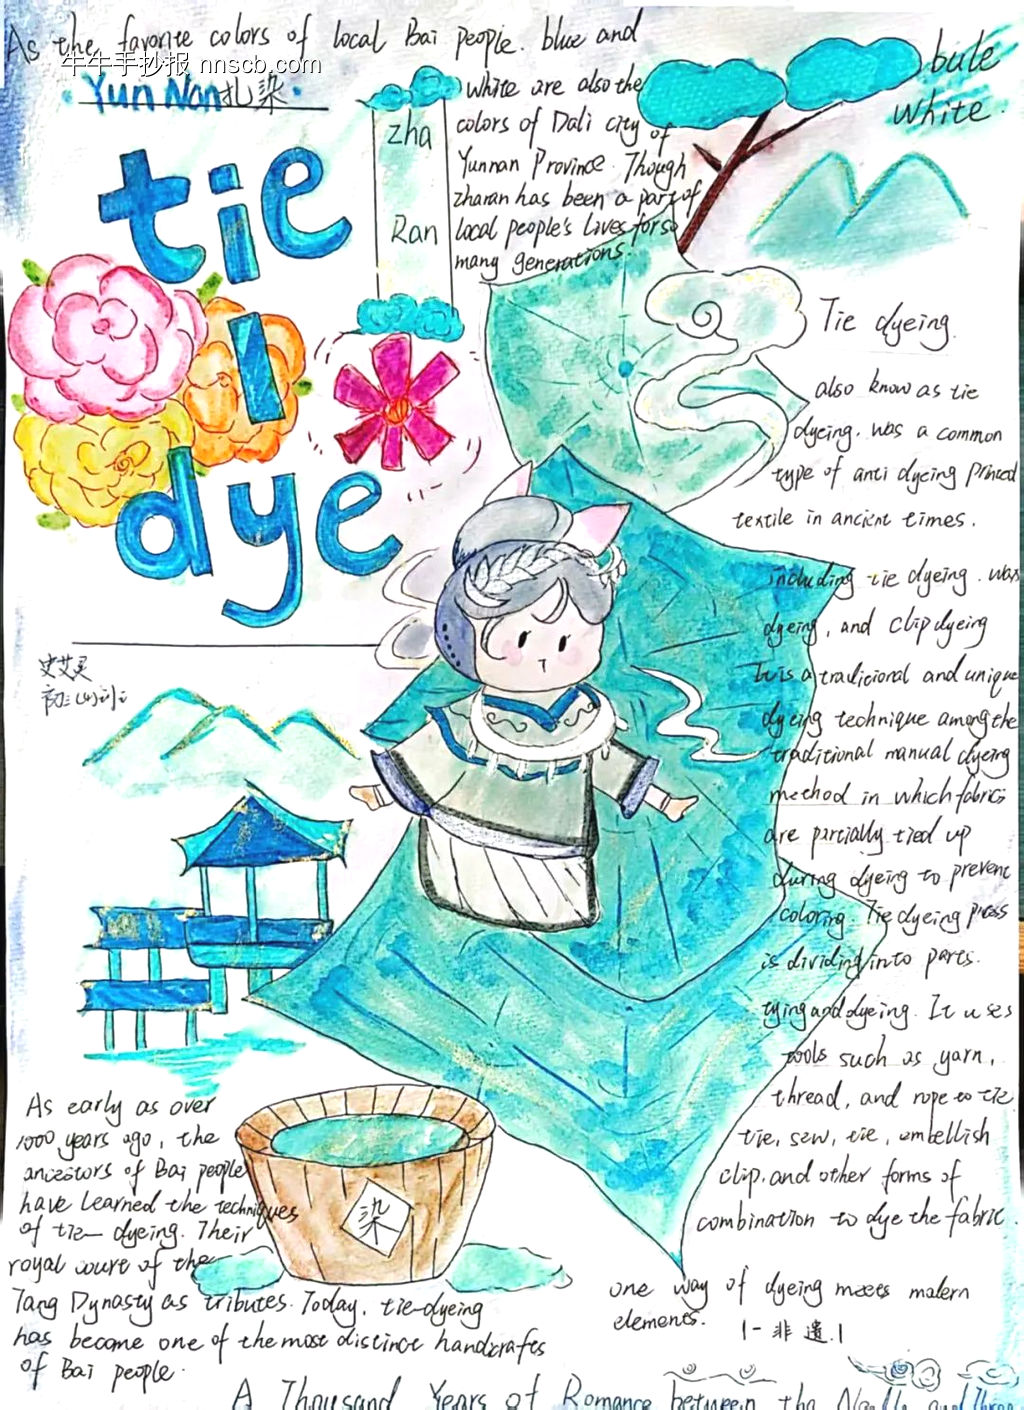 As the favorite colors of local Bai people. blue and
牛牛手抄报 nnscb.com
Yun Nan扎染
tie
I
dye
zha
Ran
white are also the
colors of Dali city of
Yunnan Province. Though
zharan has been a part of
local people's lives for so
many generations.
bule
white.
Tie dyeing.
also know as tie
dyeing. was a common
type of anti dyeing princed
textile in ancient times.
including tie dyeing. wax
dyeing, and clip dyeing
It is a tradicional and unique
dyeing technique among the
traditional manual dyeing
method in which fabrics
are parcially tied up
during dyeing to prevent
coloring. Tie dyeing
is dividing into parts.
tying and dyeing. It uses
tools such as yarn,
thread, and rope to tie
tie, sew, tie, embellish
clip. and other forms of
combination to dye the fabric.
one way of dyeing meets
elements.
1-非遗.1
史艾灵
As early as over
1000 years ago, the
ancestors of Bai people
have learned the techniques
of tie- dyeing. Their
royal court of the
Tang Dynasty as tributes. Today, tie-dyeing
has become one of the most distinct handcrafts
of Bai people.
染
A Thousand Years of Romance between the Needle and